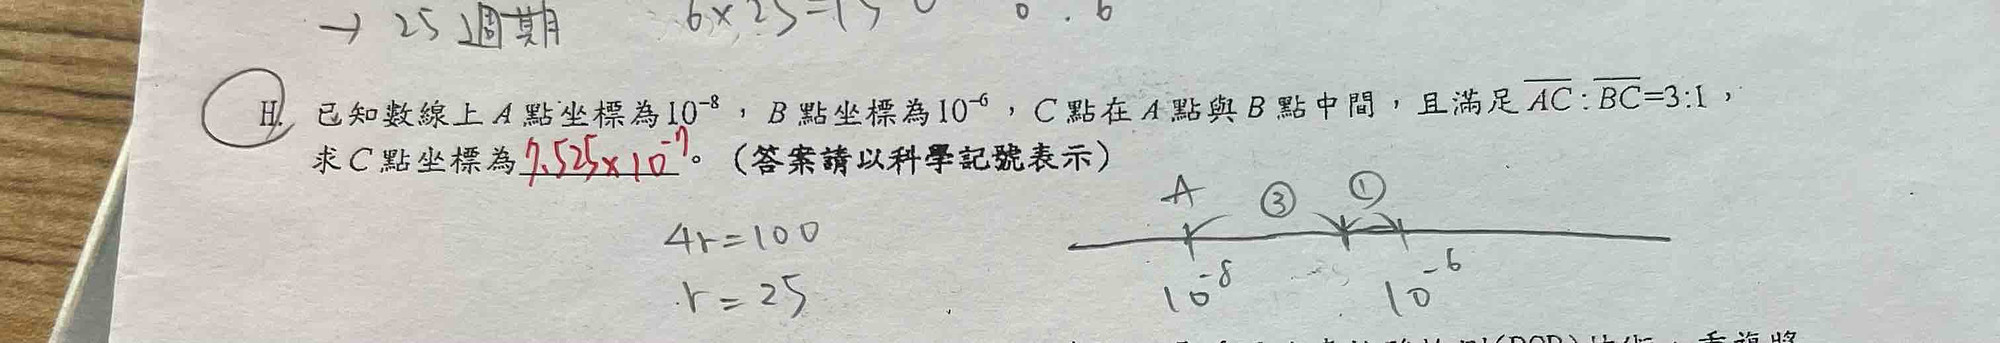 → 25 週期 6×25=15
H. 已知數線上 A 點坐標為10⁻⁸，B 點坐標為10⁻⁶，C 點在 A 點與 B 點中間，且滿足 A̅C̅:B̅C̅=3:1，
求 C 點坐標為7.525×10⁻⁷。（答案請以科學記號表示）
A ③ ①
4r=100
10⁻⁸ 10⁻⁶
r=25